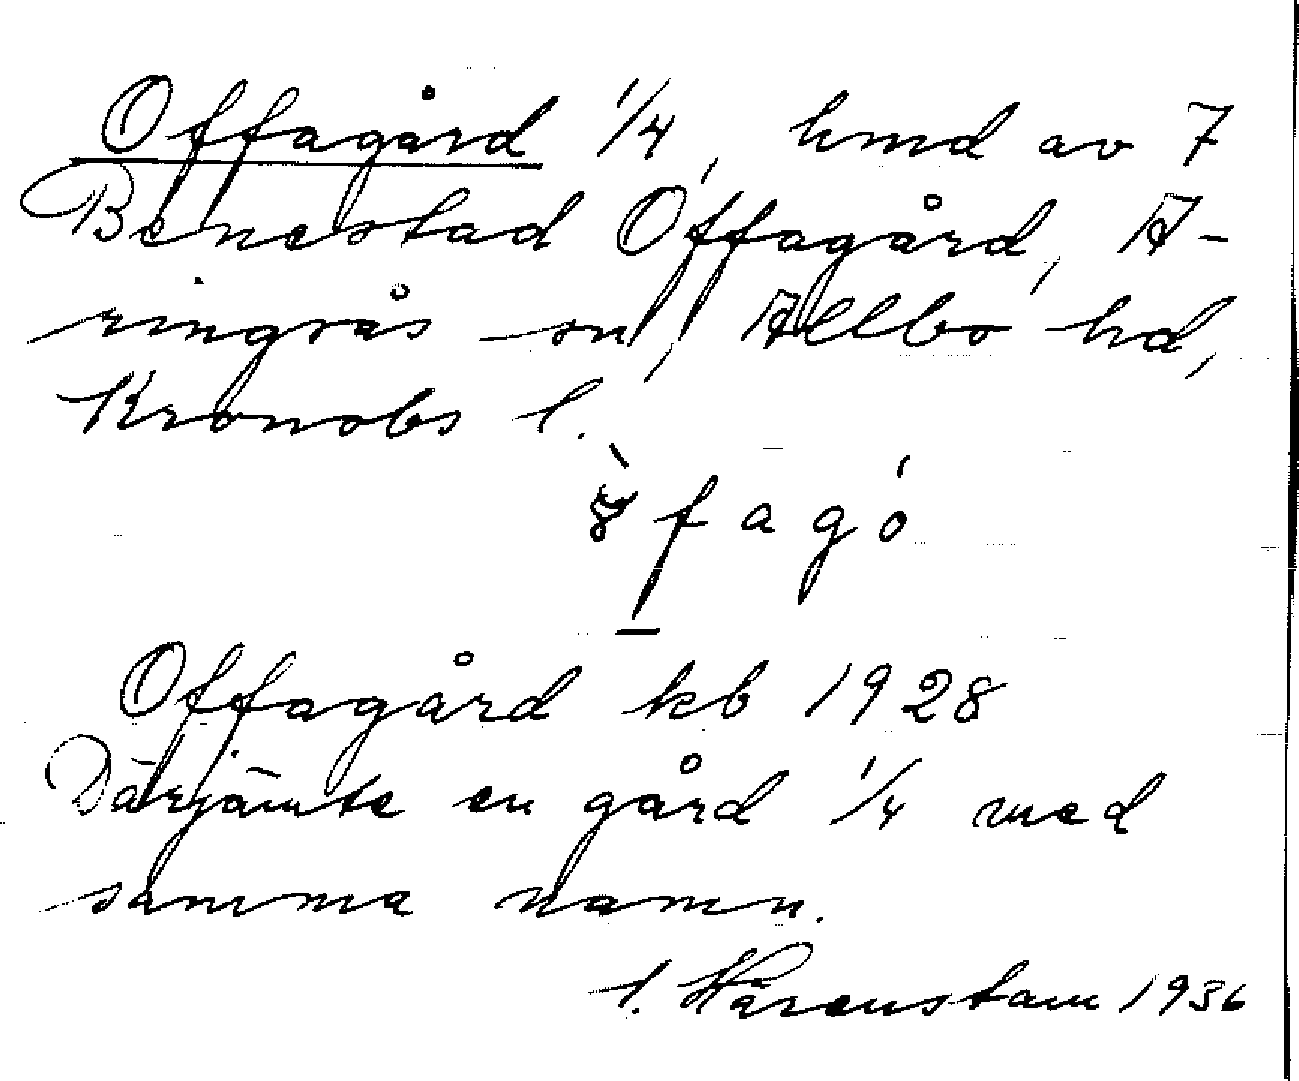 Offagård 1/4, hmd av 7
Benestad Offagård, A-
ringsås sn, Allbo hd,
Kronobs l.
fagó
Offagård kb 1928
Därjämte en gård 1/4 med
samma namn.
I. Härenstam 1936